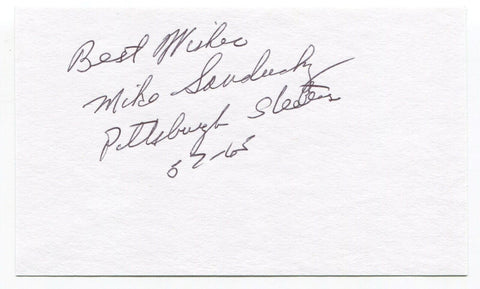 Best Wishes
Mike Sandusky
Pittsburgh Steelers
57-65